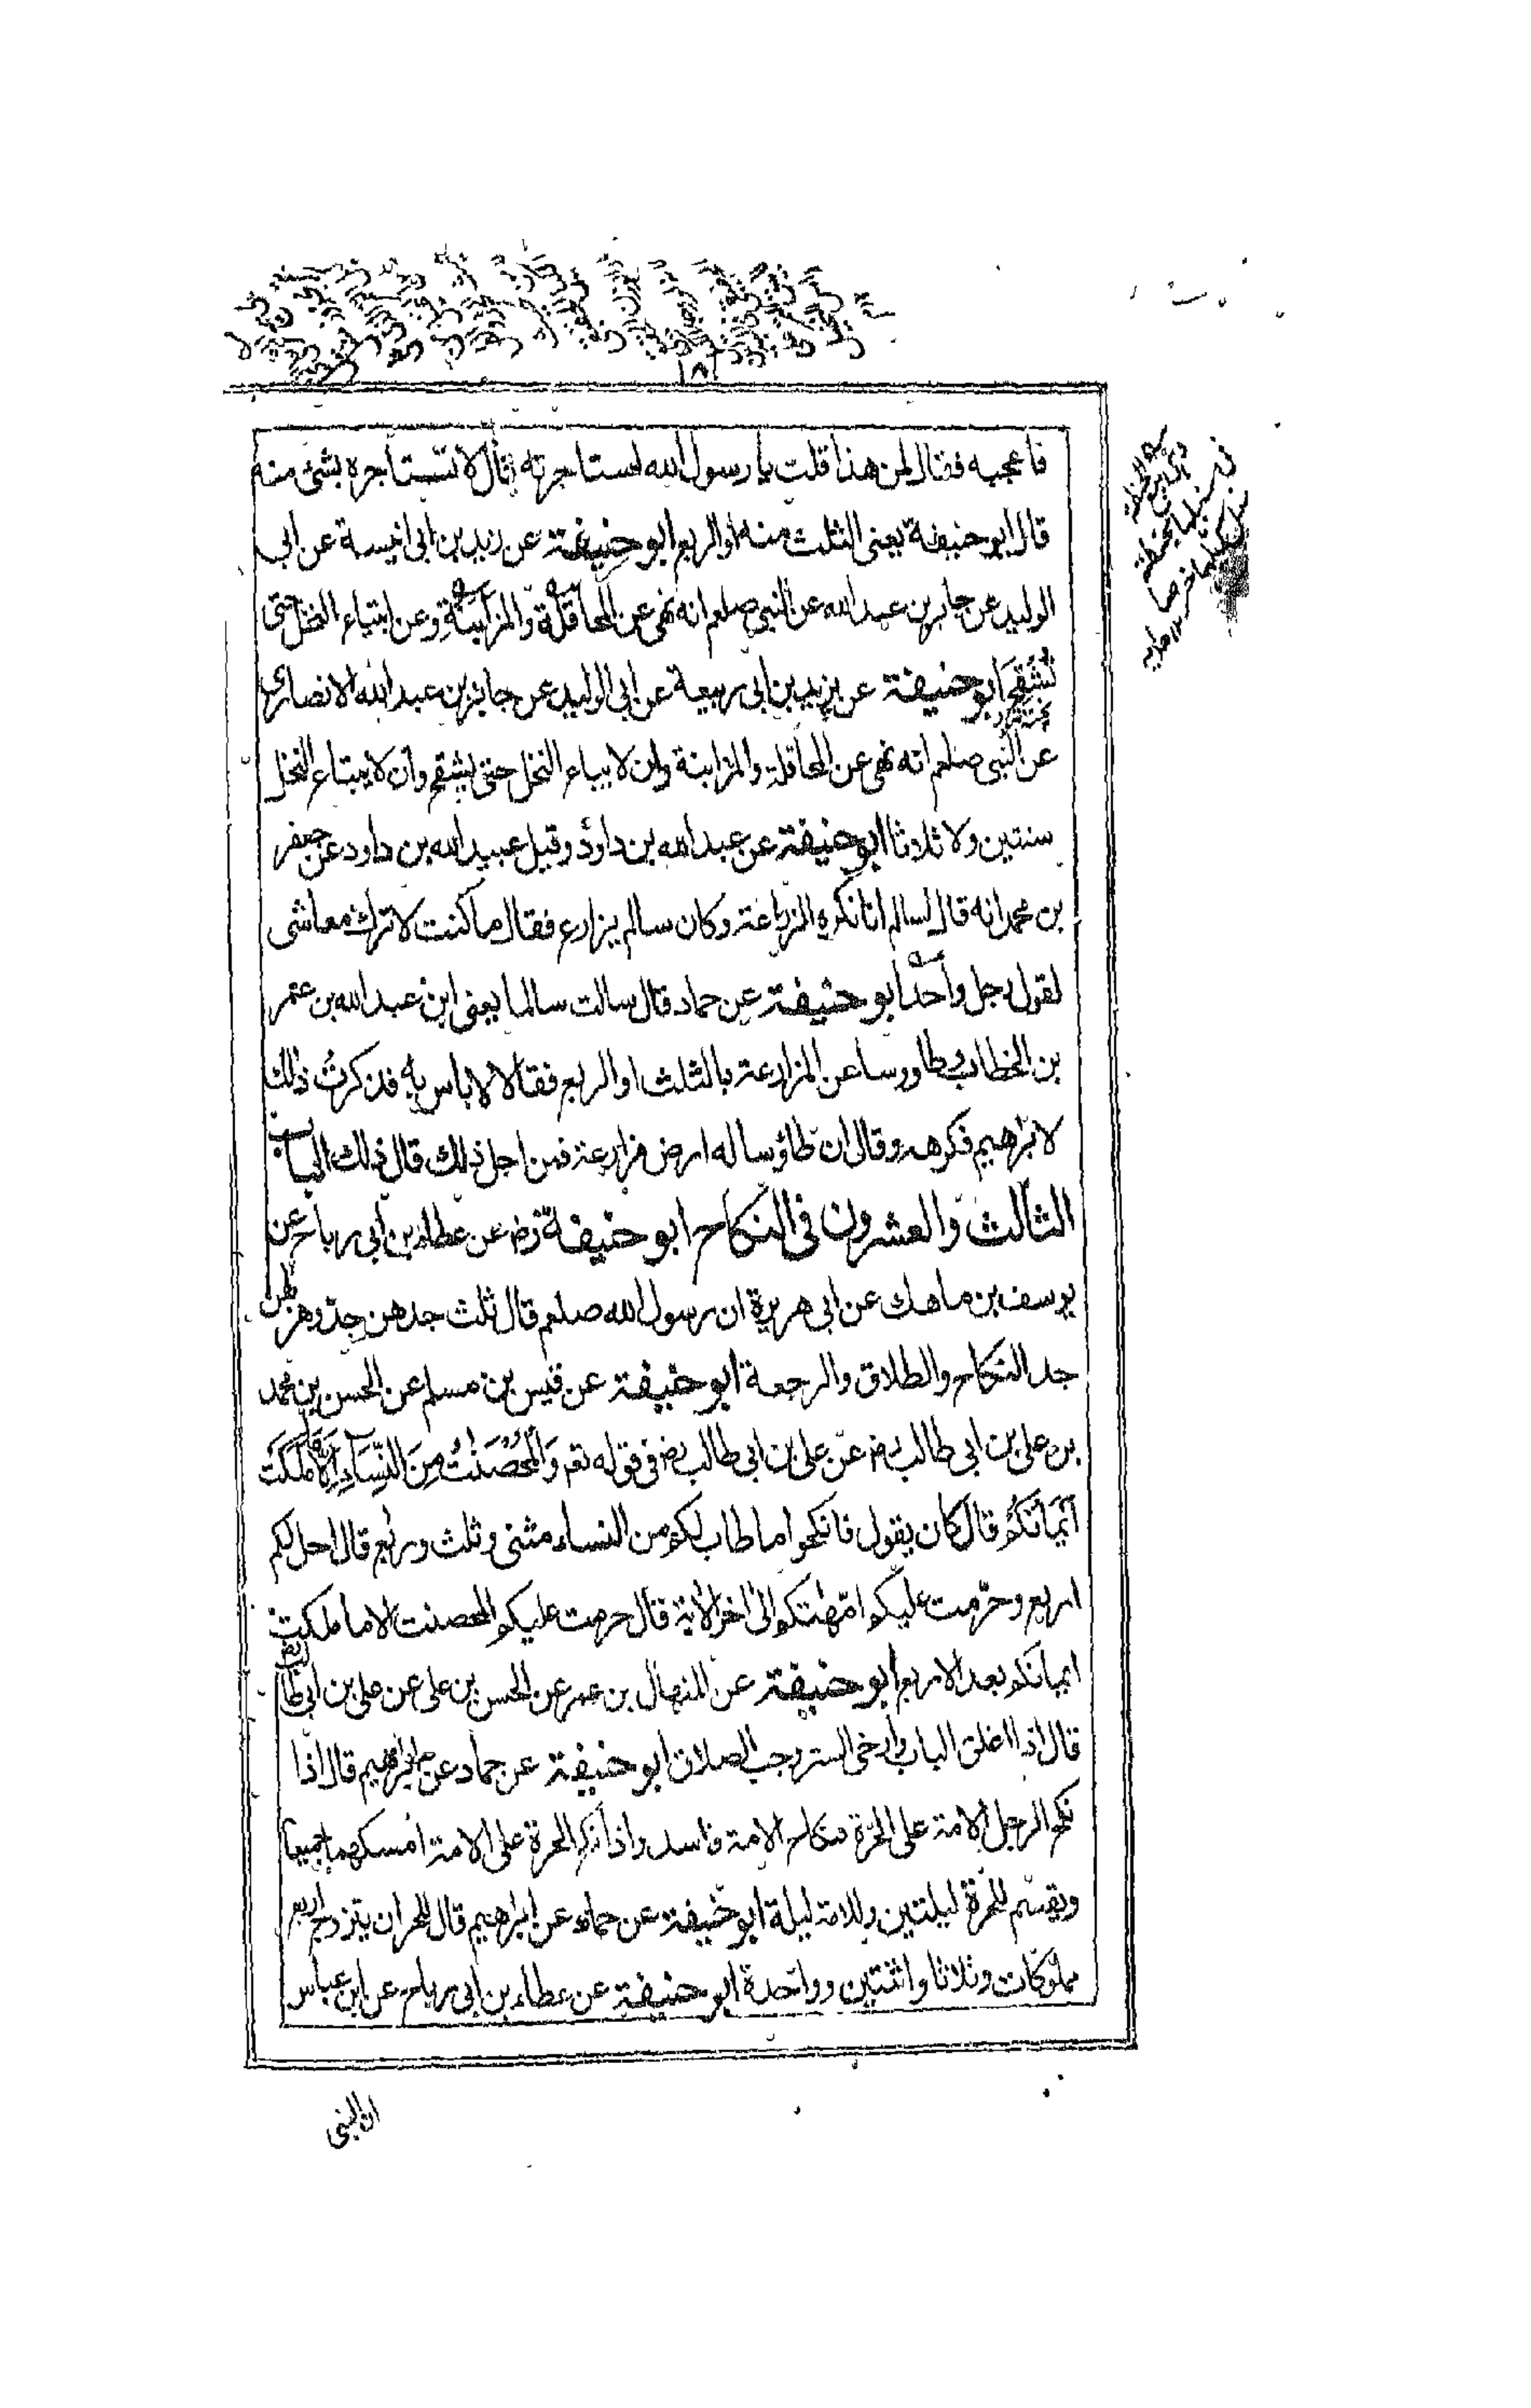 ١٨١
فاعجبه فقال لمن هذا قلت يا رسول الله استاجرته قال لا تستاجره بشئ منه
قال ابو حنيفة يعنى الثلث منه او الربع ابو حنيفة عن زيد بن ابى انيسة عن ابى
الوليد عن جابر بن عبد الله عن النبى صلعم انه نهى عن المحاقلة والمزابنة وعن ابتياع النخل حتى
تُشْقِحَ ابو حنيفة عن يزيد بن ابى ربيعة عن ابى الوليد عن جابر بن عبد الله الانصارى
عن النبى صلعم انه نهى عن المحاقلة والمزابنة وان لا يباع النخل حتى يشقح وان لا يبتاع النخل
سنتين ولا ثلاثا ابو حنيفة عن عبد الله بن داود وقيل عبيد الله بن داود عن جعفر
بن محمد انه قال لسالم انا نكره المزارعة وكان سالم يزارع فقال ما كنت لاترك معاشى
لقول رجل واحد ابو حنيفة عن حماد قال سالت سالما يعنى ابن عبد الله بن عمر
بن الخطاب وطاووسا عن المزارعة بالثلث او الربع فقالا لا باس به فذكرتُ ذلك
لابرهيم فكرهه وقال ان طاؤسا له ارض مزارعة فمن اجل ذلك قال ذلك الباب
الثالث والعشرون فى النكاح ابو حنيفة رض عن عطاء بن ابى رباح عن
يوسف بن ماهك عن ابى هريرة ان رسول الله صلعم قال ثلث جدهن جدّ وهزلهن
جد النكاح والطلاق والرجعة ابو حنيفة عن قيس بن مسلم عن الحسن بن محمد
بن على بن ابى طالب رض عن على بن ابى طالب رض فى قوله تعم وَالْمُحْصَنٰتُ مِنَ النِّسَآءِ اِلَّا مَا مَلَكَتْ
اَيْمَانُكُمْ قال كان يقول فانكحوا ما طاب لكم من النساء مثنى وثلث وربع قال احل لكم
اربع وحرّمت عليكم امّهٰتكم الى اخر الاٰية قال حرمت عليكم المحصنت الا ما ملكت
ايمانكم بعد الاربع ابو حنيفة عن المنهال بن عمر عن الحسن بن على عن على بن ابى طالب رض
قال اذا اغلق الباب وارخى الستر وجب الصداق ابو حنيفة عن حماد عن ابرهيم قال اذا
نكح الرجل الامة على الحرّة فنكاح الامة فاسد واذا نكح الحرة على الامة امسكهما جميعا
ويقسّم للحرة ليلتين وللامة ليلة ابو حنيفة عن حماد عن ابرهيم قال للحر ان يتزوج اربع
مملوكات وثلاثا واثنتين وواحدة ابو حنيفة عن عطاء بن ابى رباح عن ابن عباس
ان النبى